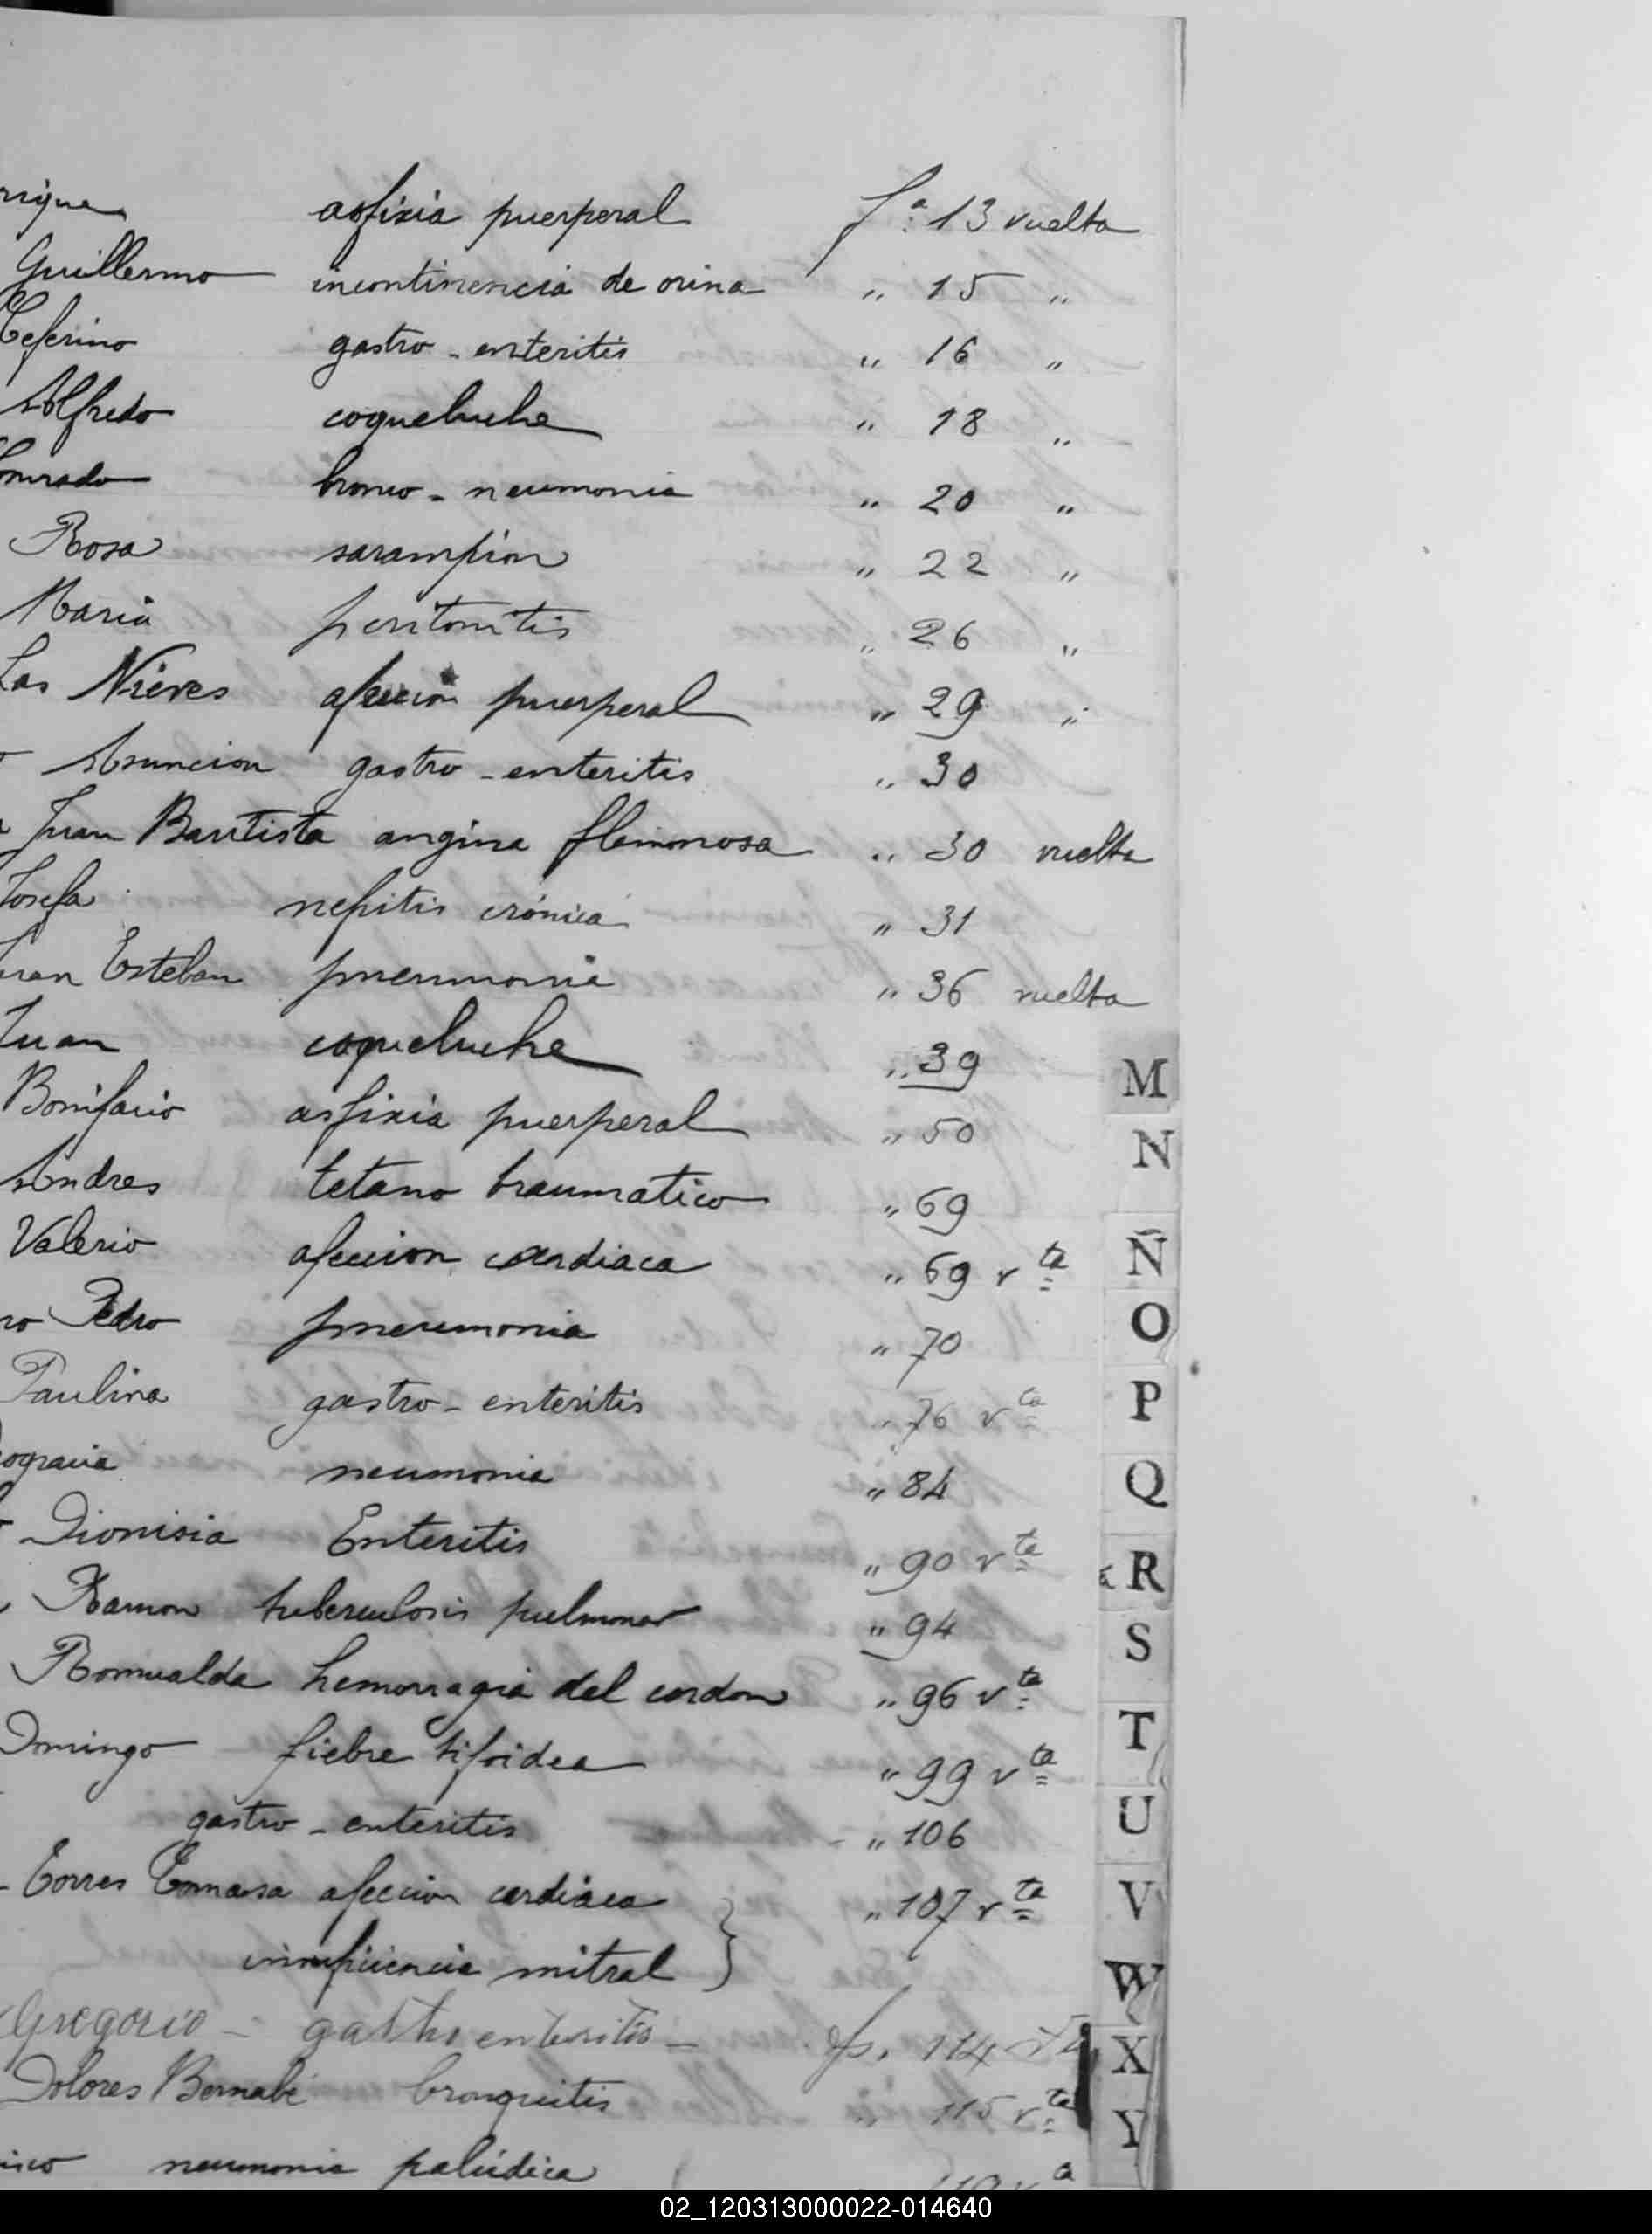 asfixia puerperal fª: 13 vuelta
Guillermo incontinencia de orina " 15 "
Ceferino gastro-enteritis " 16 "
Alfredo coqueluche " 18 "
bronco-neumonia " 20 "
Rosa sarampion " 22 "
Maria peritonitis " 26 "
Las Nieves afeccion puerperal " 29 "
Asuncion gastro-enteritis " 30
Juan Bautista angina flemonosa " 30 vuelta
Josefa nefitis crónica " 31
Esteban pneumonia " 36 vuelta
Juan coqueluche " 39
M
Bonifacio asfixia puerperal " 50
N
Andres tetano traumatico " 69
Valerio afeccion cardiaca " 69 vta
Ñ
ro Pedro pneumonia " 70
O
Paulina gastro-enteritis " 76 vta
P
ogracia neumonia " 84
Q
Dionisia Enteritis " 90 vta
R
Ramon tuberculosis pulmonar " 94
S
Romualda hemorragia del cordon " 96 vta
Domingo fiebre tifoidea " 99 vta
T
gastro-enteritis " 106
U
Torres Tomasa afeccion cardiaca " 107 vta
V
insuficiencia mitral }
W
Gregorio - gastro enteritis - fs. 114
X
Dolores Bernabé bronquitis " 115 vta
Y
neumonia palúdica
02_120313000022-014640